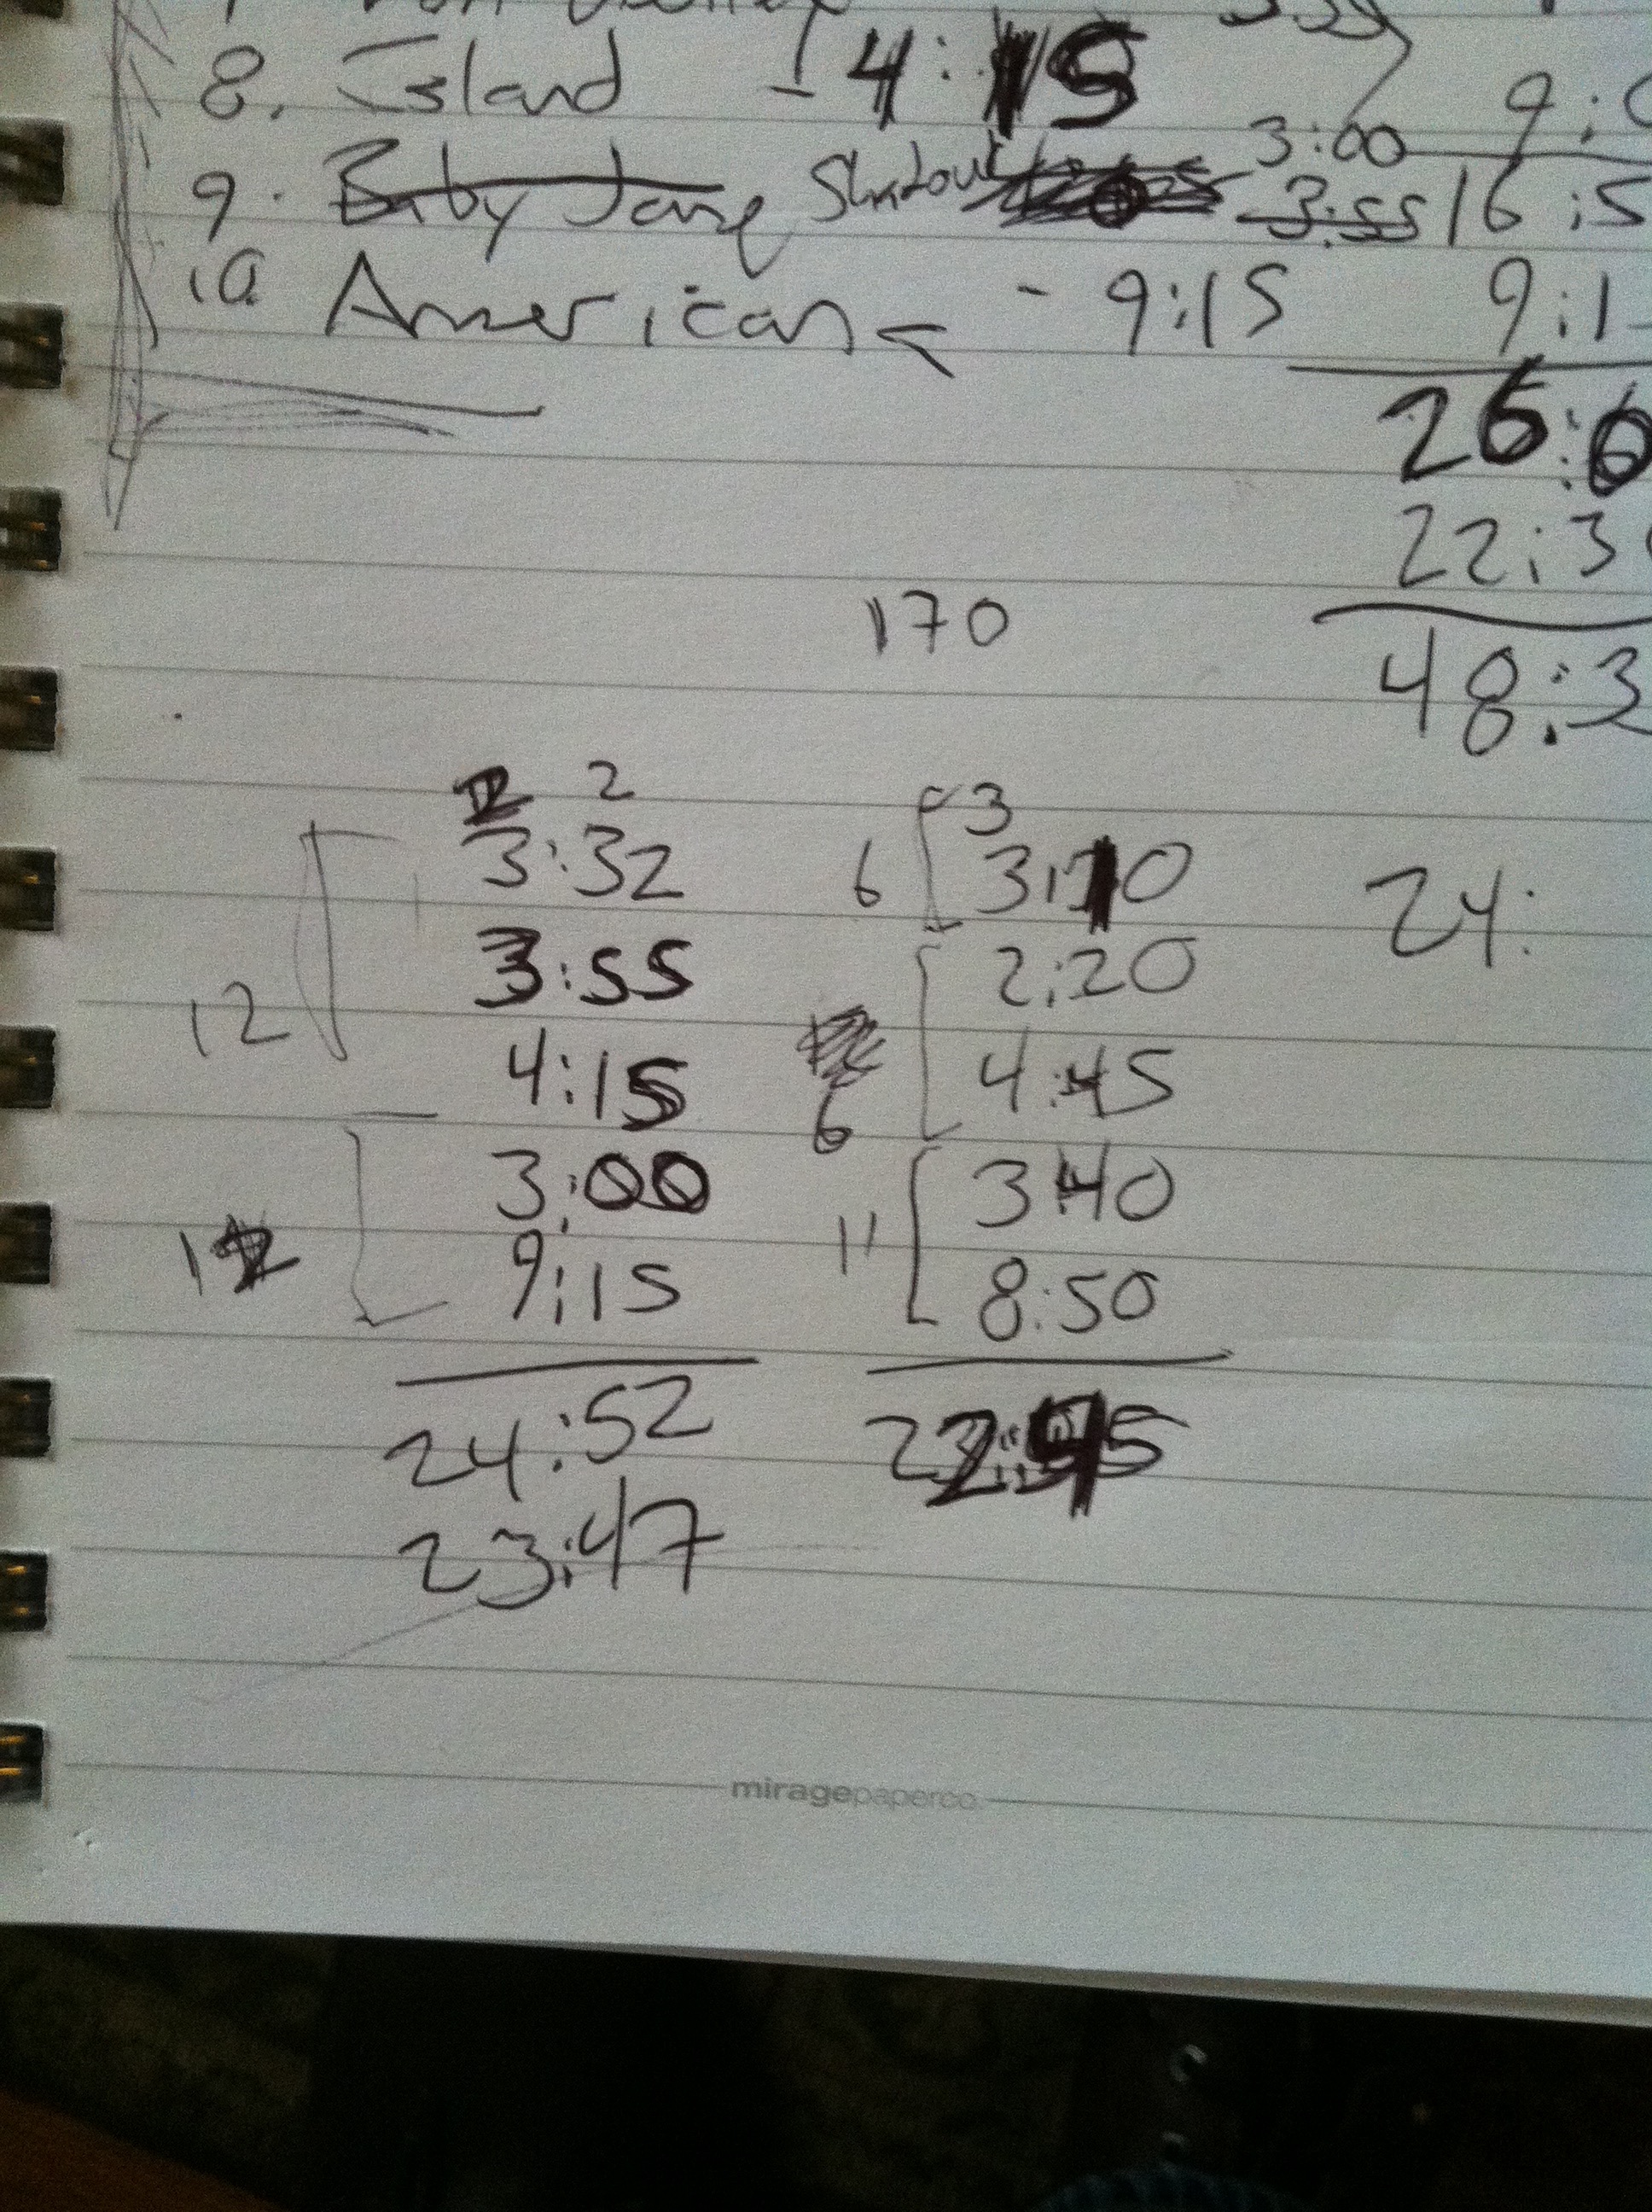 8. Island - 4:15 9:
9. Baby Jane Shadow 3:00 3:55 16:5
10 American - 9:15 9:1
26:0
22:3
170
48:3
2 3
3:32 6 3:10 24:
3:55 2:20
12 4:15 4:45
6
3:00 3:40
12 9:15 11 8:50
24:52 22:45
23:47
miragepaperco.